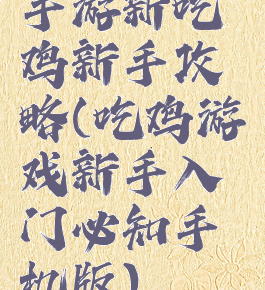 手游新吃
鸡新手攻
略(吃鸡游
戏新手入
门必知手
机版)